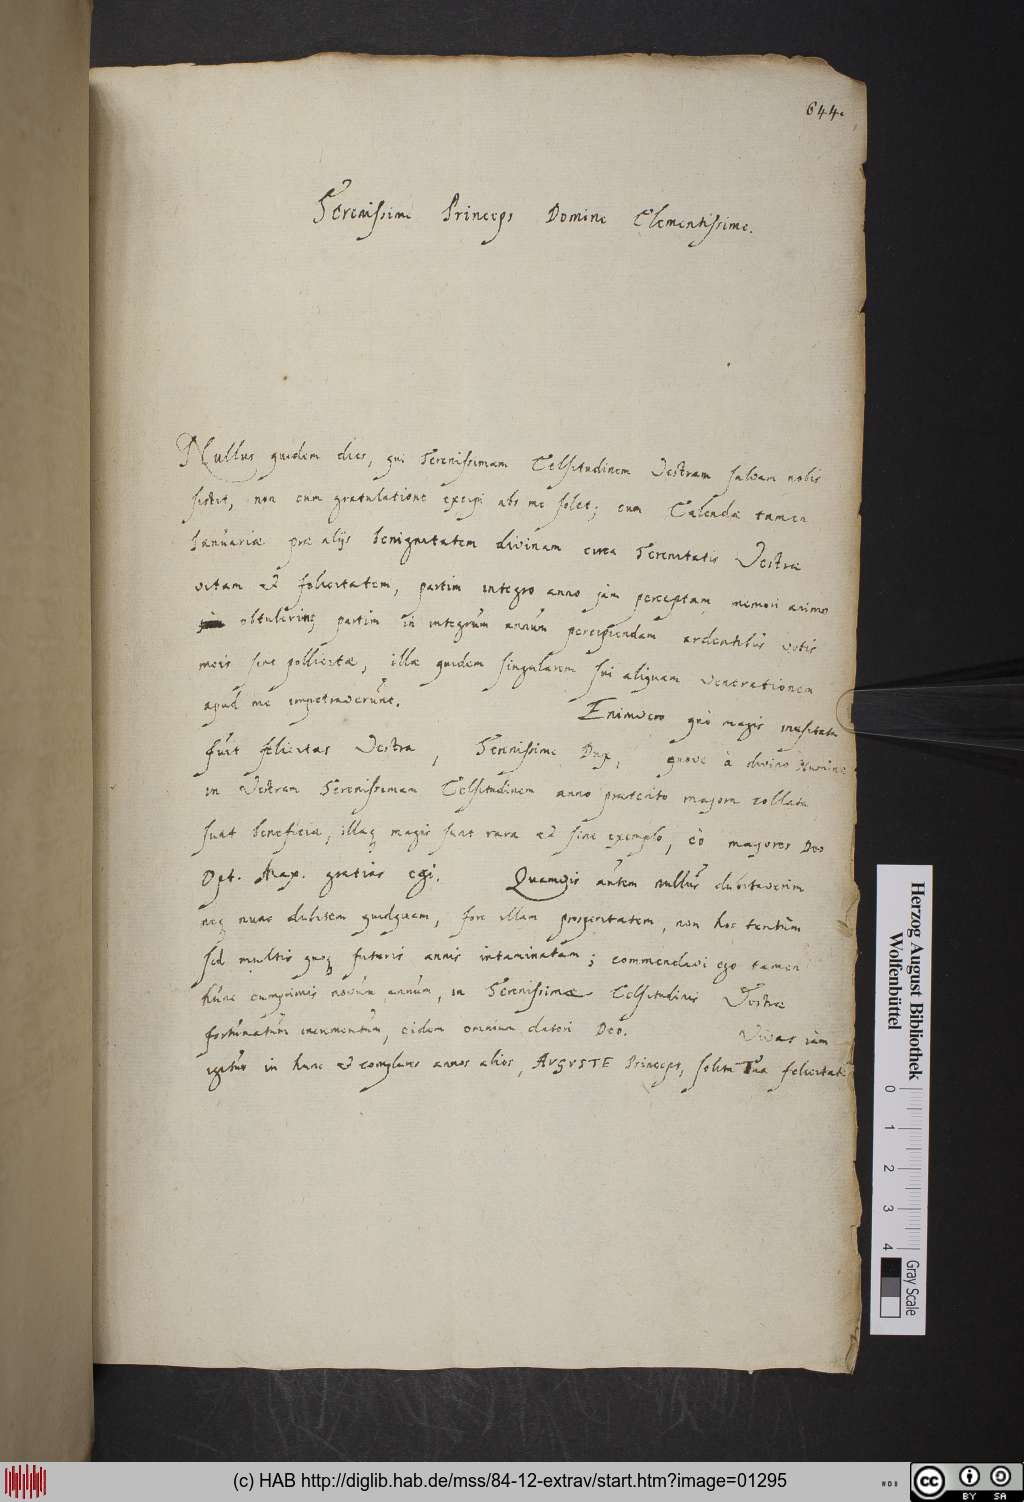 644.
Serenissime Princeps Domine Clementissime.
Nullus quidem dies, qui Serenissimam Celsitudinem Vestram salvam nobis
sistit, non cum gratulatione excipi abs me solet; cum Calendæ tamen
Januariæ præ alijs benignitatem divinam circa Serenitatis Vestræ
vitam et felicitatem, partim integro anno jam perceptam memori animo
obtulerint partim in integrum annum percipiendam ardentibus votis
meis sint pollicitæ, illæ quidem singularem sui aliquam venerationem
apud me impetraverunt. Enimvero quò magis inusitata
fuit felicitas Vestra, Serenissime Dux, quove à divino Numine
in Vestram Serenissimam Celsitudinem anno præterito majora collata
sunt beneficia, illaq magis sunt rara et sine exemplo, eò majores Deo
Opt. Max. gratias egi. Quamvis autem nullus dubitaverim
neq nunc dubitem quidquam, fore illam prosperitatem, non hoc tantùm
sed multis quoq futuris annis intaminatam; commendavi ego tamen
hunc cumprimis novum annum, in Serenissimæ Celsitudinis Vestræ
fortunatum incrementum, eidem omnium datori Deo. Vivas iam
igitur in hunc et complures annos alios, AVGVSTE Princeps, solita Tua felicitate
Herzog August Bibliothek
Wolfenbüttel
0 1 2 3 4
Gray Scale
(c) HAB http://diglib.hab.de/mss/84-12-extrav/start.htm?image=01295
WDB
cc BY SA